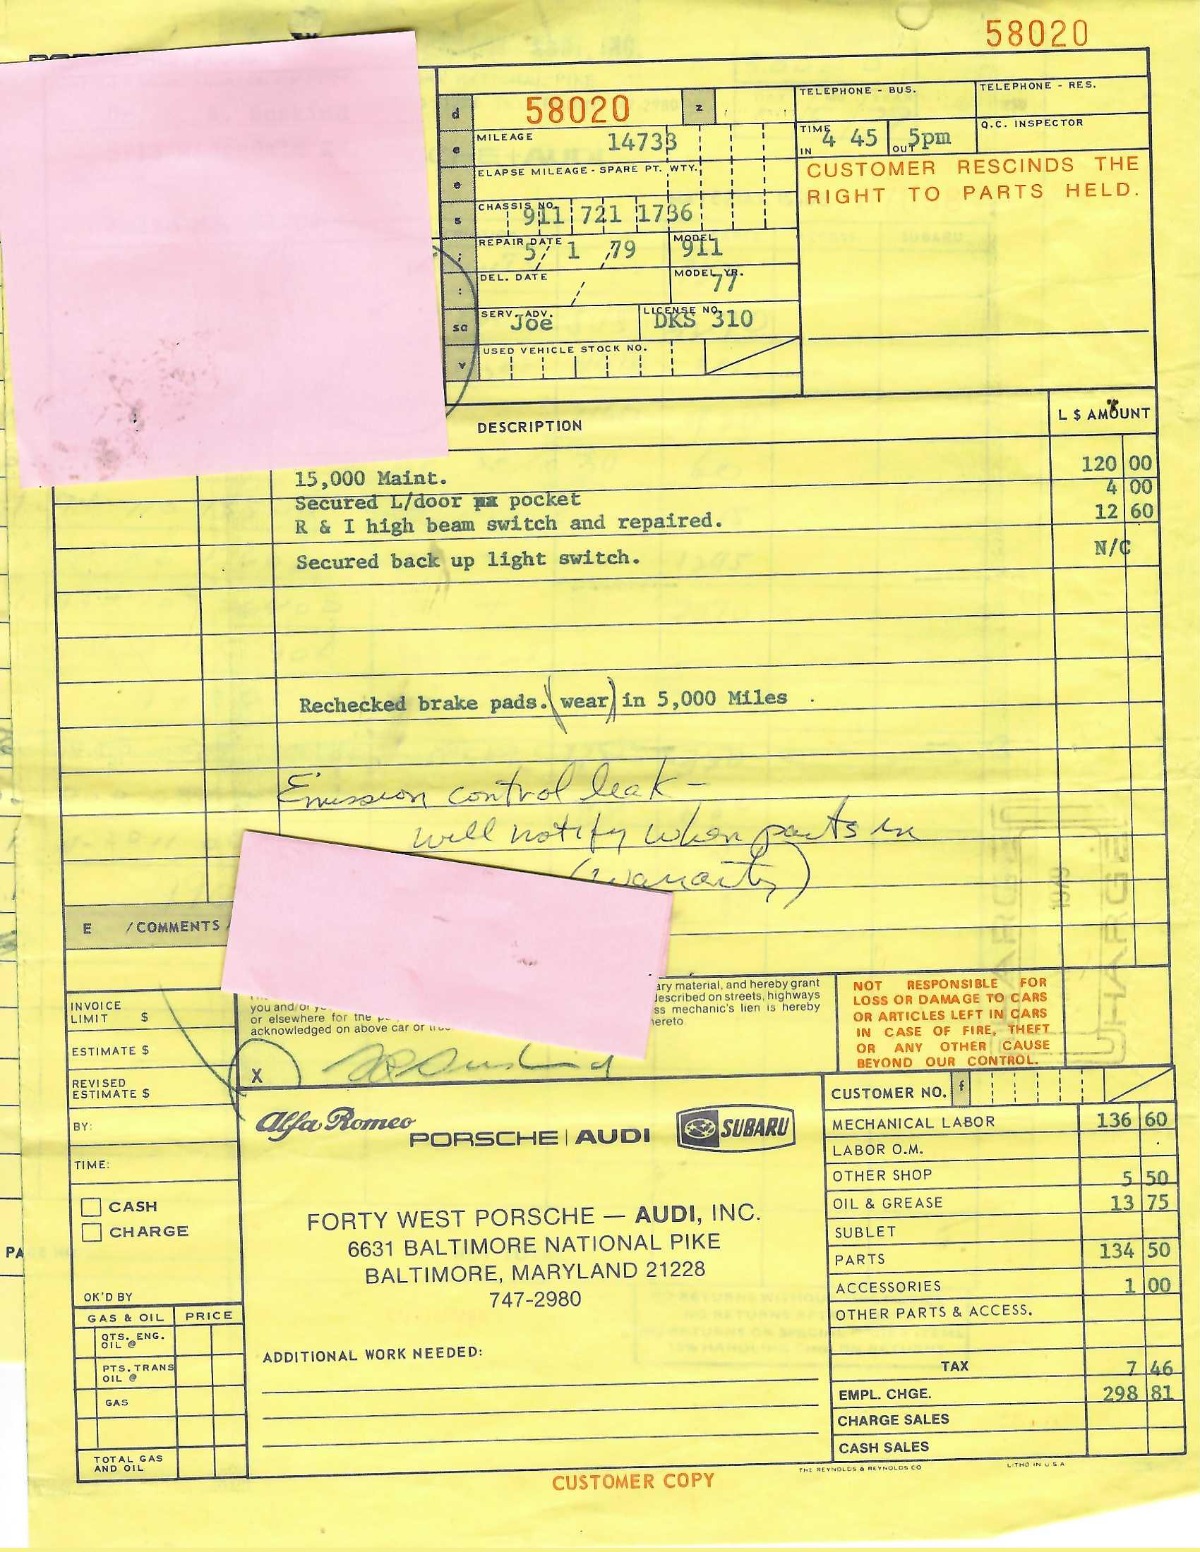 58020
d 58020 z
MILEAGE 14733
ELAPSE MILEAGE - SPARE PT. WTY.
CHASSIS NO. 911 721 1736
REPAIR DATE 5/ 1 /79 MODEL 911
DEL. DATE / MODEL YR. 77
SERV. ADV. Joe LICENSE NO. DKS 310
USED VEHICLE STOCK NO.
TELEPHONE - BUS. TELEPHONE - RES.
TIME IN 4 45 OUT 5pm Q.C. INSPECTOR
CUSTOMER RESCINDS THE
RIGHT TO PARTS HELD.
DESCRIPTION L $ AMOUNT
15,000 Maint. 120 00
Secured L/door pocket 4 00
R & I high beam switch and repaired. 12 60
Secured back up light switch. N/C
Rechecked brake pads. (wear) in 5,000 Miles
Emission control leak -
will notify when parts in
(warranty)
E / COMMENTS /
INVOICE
LIMIT $
ESTIMATE $
REVISED
ESTIMATE $
BY:
TIME:
CASH
CHARGE
OK'D BY
GAS & OIL PRICE
QTS. ENG.
OIL @
PTS. TRANS
OIL @
GAS
TOTAL GAS
AND OIL
ary material, and hereby grant
you and/or described on streets, highways
or elsewhere for the ss mechanic's lien is hereby
acknowledged on above car or hereto
X
NOT RESPONSIBLE FOR
LOSS OR DAMAGE TO CARS
OR ARTICLES LEFT IN CARS
IN CASE OF FIRE, THEFT
OR ANY OTHER CAUSE
BEYOND OUR CONTROL.
Alfa Romeo PORSCHE | AUDI SUBARU
FORTY WEST PORSCHE — AUDI, INC.
6631 BALTIMORE NATIONAL PIKE
BALTIMORE, MARYLAND 21228
747-2980
ADDITIONAL WORK NEEDED:
CUSTOMER NO. f
MECHANICAL LABOR 136 60
LABOR O.M.
OTHER SHOP 5 50
OIL & GREASE 13 75
SUBLET
PARTS 134 50
ACCESSORIES 1 00
OTHER PARTS & ACCESS.
TAX 7 46
EMPL. CHGE. 298 81
CHARGE SALES
CASH SALES
THE REYNOLDS & REYNOLDS CO LITHO IN U S A
CUSTOMER COPY